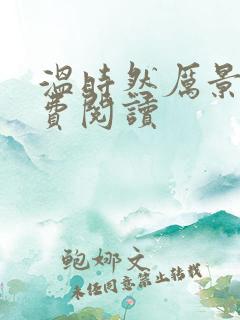 温时然厲景
費閱讀
鲍娜文
未经同意禁止转载